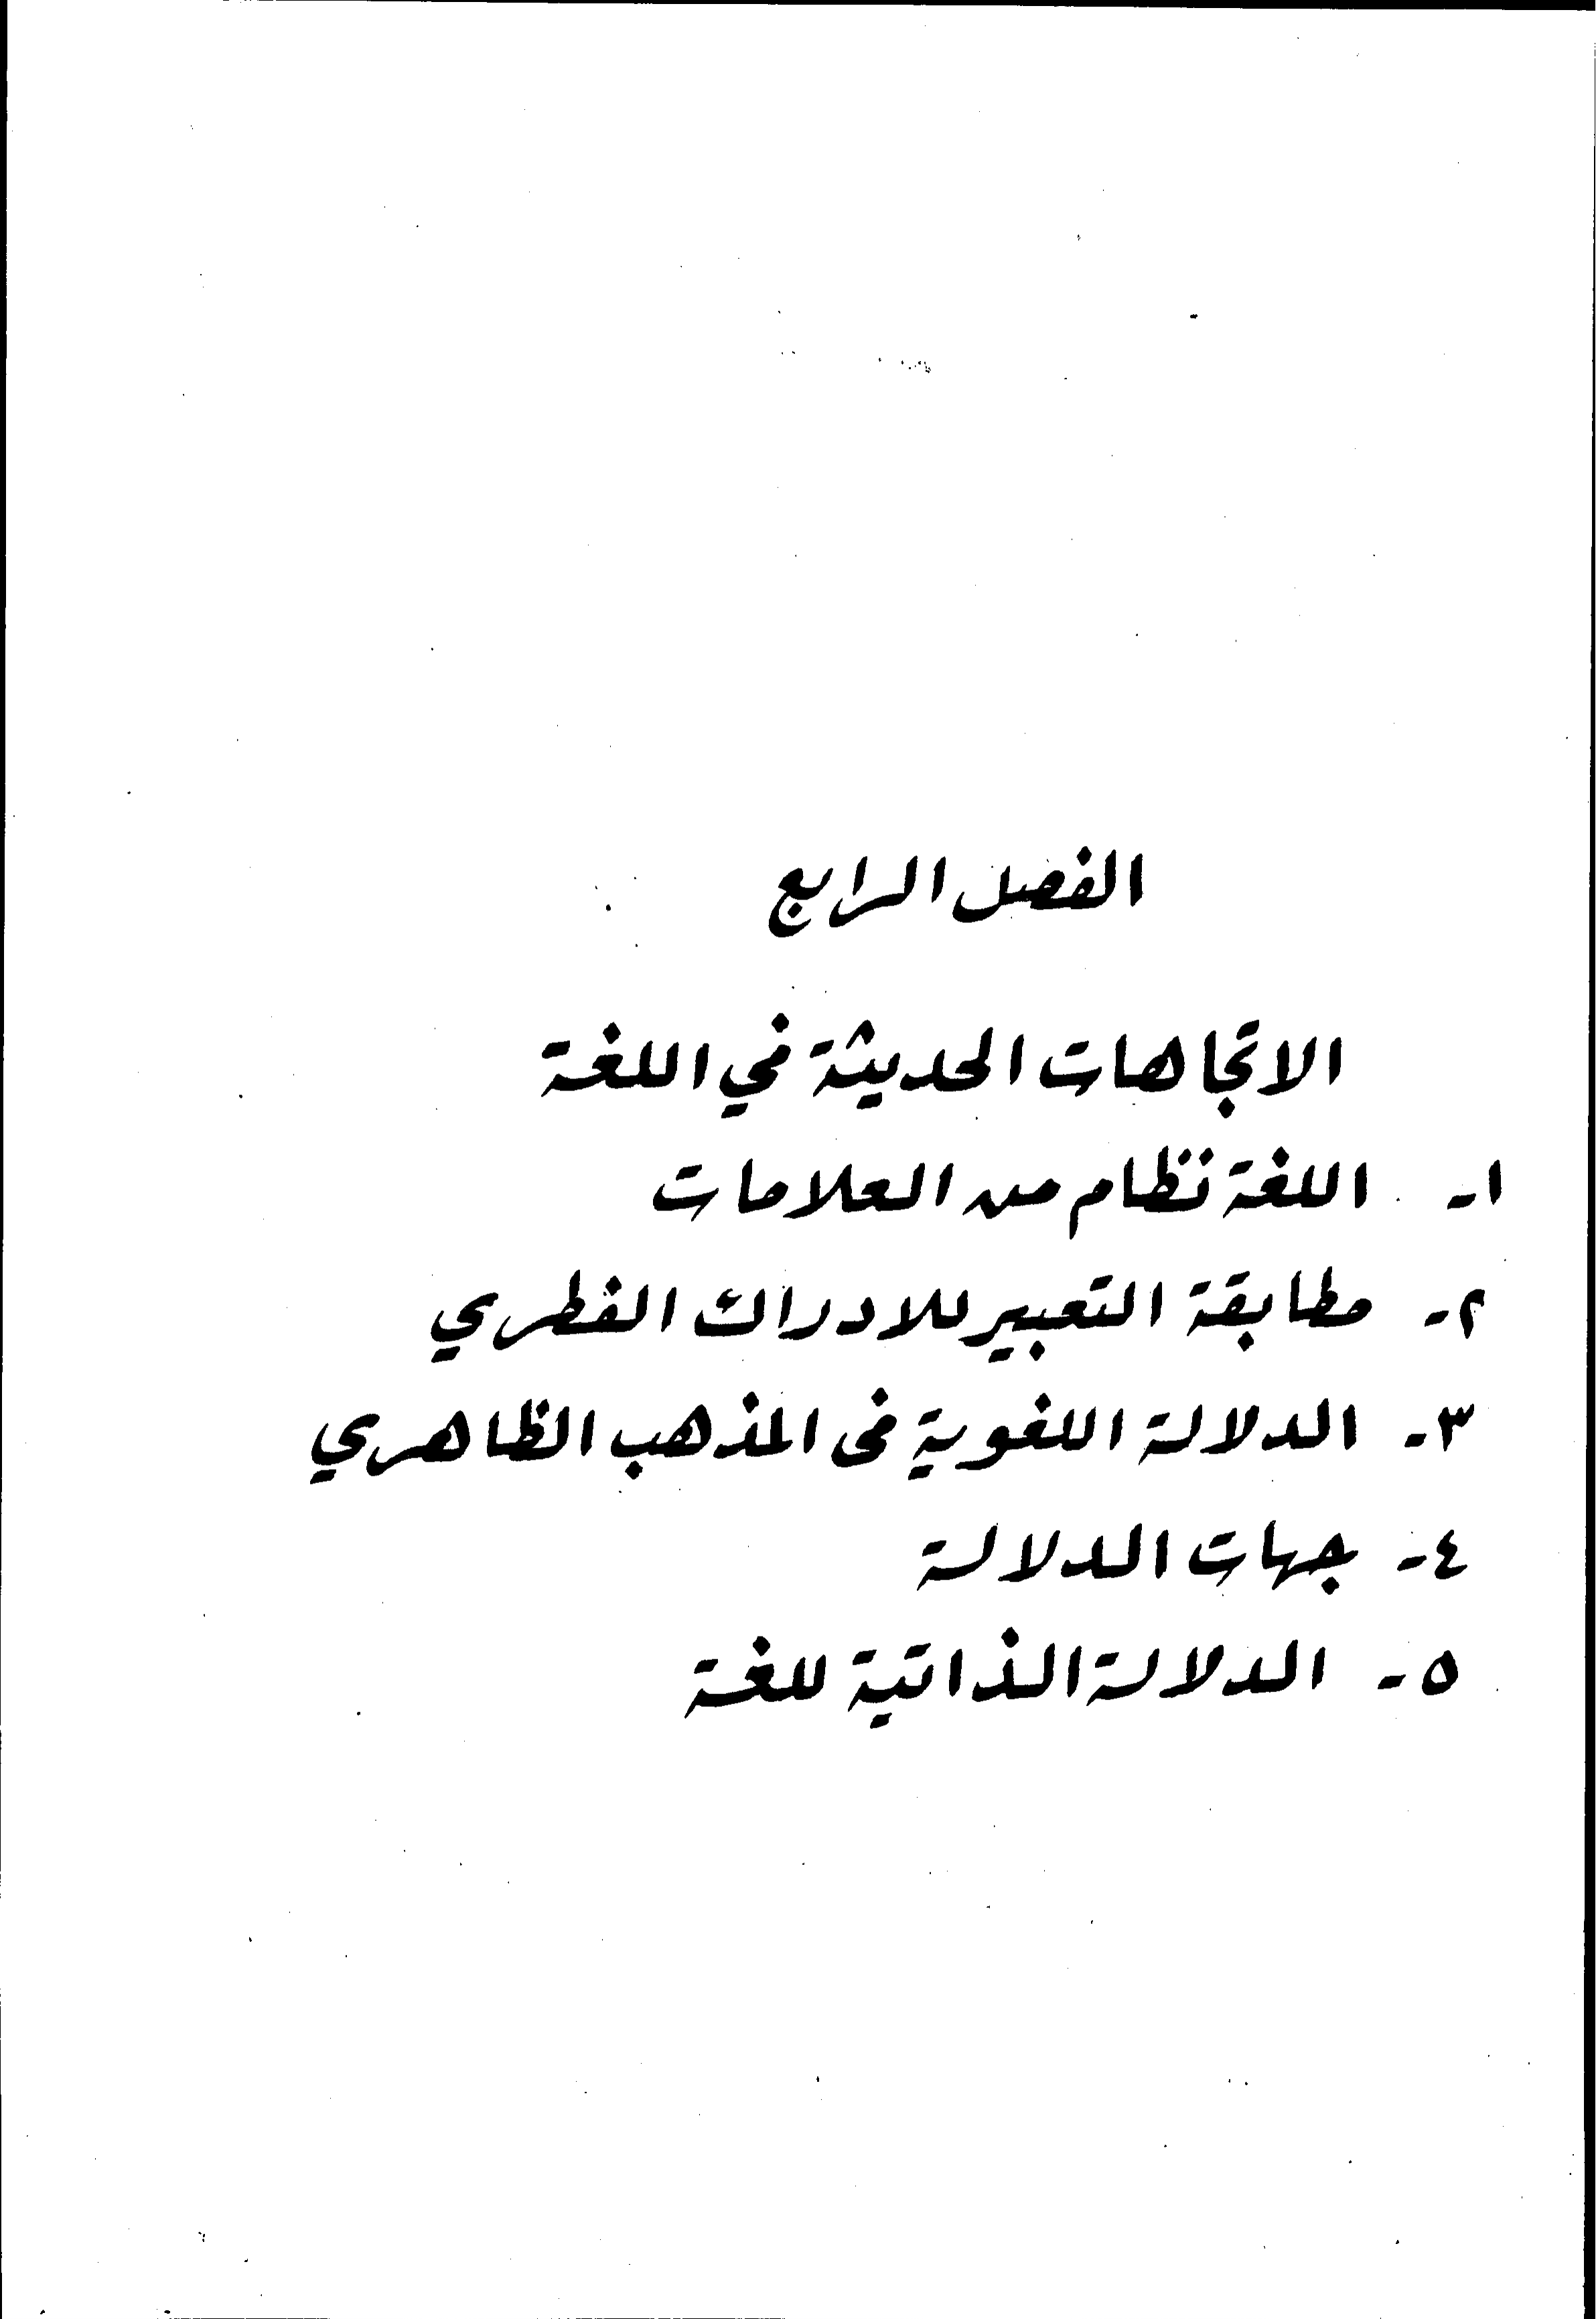 الفصل الرابع
الاتجاهات الحديثة في اللغة
١- اللغة نظام من العلامات
٢- مطابقة التعبير للادراك الفطري
٣- الدلالة اللغوية فى المذهب الظاهري
٤- جهات الدلالة
٥- الدلالة الذاتية للغة